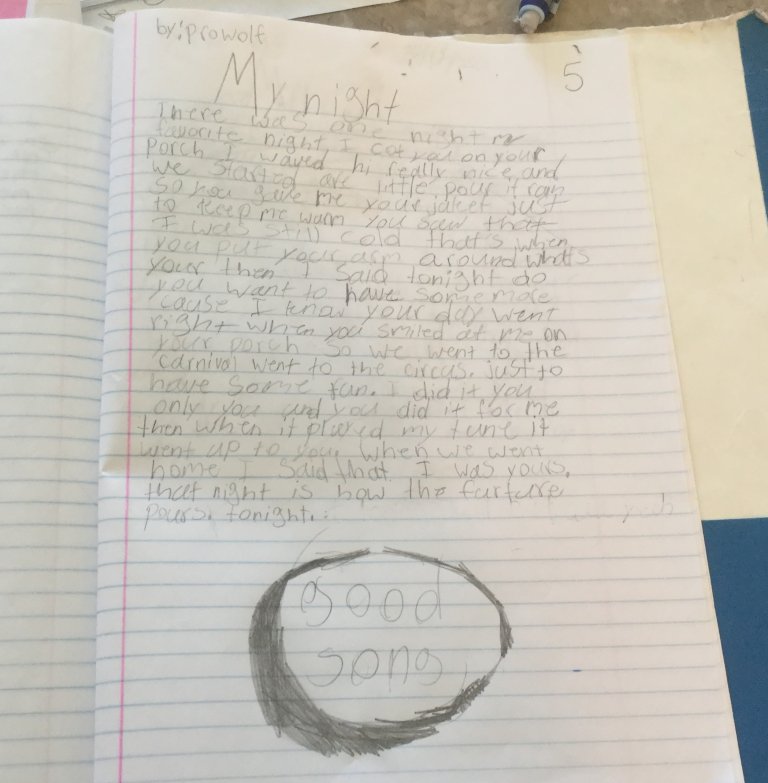 by: prowolf
5
My night
There was one night my
favorite night, I cot you on your
porch I waved hi really nice, and
we started are little pour it rain
so you gave me your jaket just
to keep me warm you saw that
I was still cold that's when
you put your arm around whats
your then I said tonight do
you want to have some more
cause I know your day went
right when you smiled at me on
your porch so we went to the
carnival went to the circus. just to
have some fun. I did it you
only you and you did it for me
then when it played my tune it
went up to you, when we went
home I said that I was yours.
that night is how the furture
pours. tonight..
good
song